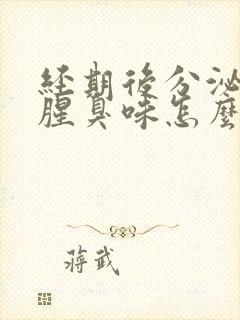 經期後分泌
腥臭味怎麼
蔣武